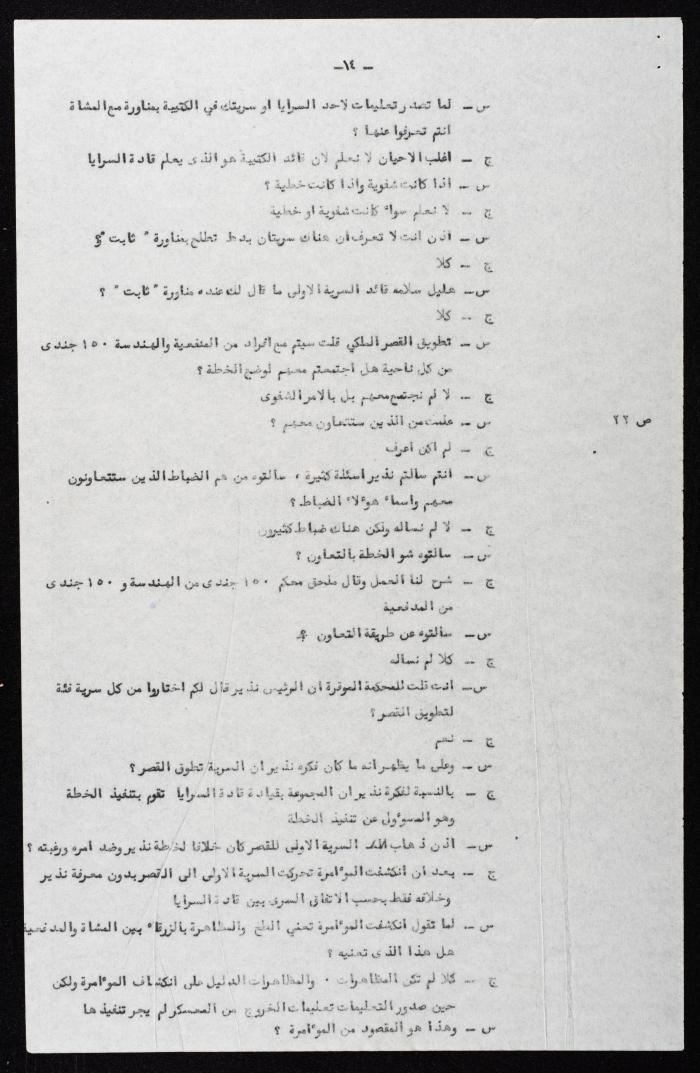 - ١٤-
س - لما تصدر تعليمات لاحد السرايا او سريتك في الكتيبة بمناورة مع المشاة
انتم تعرفوا عنها ؟
ج - اغلب الاحيان لا نعلم لان قائد الكتيبة هو الذى يعلم قادة السرايا
س - اذا كانت شفوية واذا كانت خطية ؟
ج - لا نعلم سواء كانت شفوية او خطية
س - اذن انت لا تعرف ان هناك سريتان بدها تطلع بمناورة " ثابت " ؟
ج - كلا
س - هليل سلامه قائد السرية الاولى ما قال لك عنده مناورة " ثابت " ؟
ج - كلا
س - تطويق القصر الملكي قلت سيتم مع افراد من المدفعية والهندسة ١٥٠ جندى
من كل ناحية هل اجتمعتم معهم لوضع الخطة ؟
ج - لا لم نجتمع معهم بل بالامر الشفوى
س - علمت من الذين ستتعاون معهم ؟
ص ٢٢
ج - لم اكن اعرف
س - انتم سالتم نذير اسئلة كثيرة ، سالتوه من هم الضباط الذين ستتعاونون
معهم واسماء هوءلاء الضباط ؟
ج - لا لم نساله ولكن هناك ضباط كثيرون
س - سالتوه شو الخطة بالتعاون ؟
ج - شرح لنا العمل وقال ملحق معكم ١٥٠ جندى من الهندسة و ١٥٠ جندى
من المدفعية
س - سألتوه عن طريقة التعاون ؟
ج - كلا لم نساله
س - انت قلت للمحكمة الموقرة ان الرئيس نذير قال لكم اختاروا من كل سرية فئة
لتطويق القصر ؟
ج - نعم
س - وعلى ما يظهر انه ما كان فكره نذير ان السرية تطوق القصر ؟
ج - بالنسبة لفكرة نذير ان المجموعة بقيادة قادة السرايا تقوم بتنفيذ الخطة
وهو المسوءول عن تنفيذ الخطة
س - اذن ذهاب السرية الاولى للقصر كان خلافا لخطة نذير وضد امره ورغبته ؟
ج - بعد ان انكشفت الموءامرة تحركت السرية الاولى الى القصر بدون معرفة نذير
وخلافه فقط بحسب الاتفاق السرى بين قادة السرايا
س - لما تقول انكشفت الموءامرة تعني الطخ والمظاهرة بالزرقاء بين المشاة والمدفعية
هل هذا الذى تعنيه ؟
ج - كلا لم تكن المظاهرات . والمظاهرات الدليل على انكشاف الموءامرة ولكن
حين صدور التعليمات تعليمات الخروج من المعسكر لم يجر تنفيذها
س - وهذا هو المقصود من الموءامرة ؟